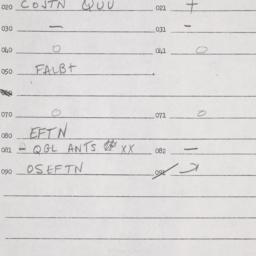 020 COJTN QUU 021 +
030 — 031 -
040 O 041 O
050 FALBT
070 O 071 O
080 EFTN
081 - QGL ANTS # XX 082 —
090 OSEFTN 091 →